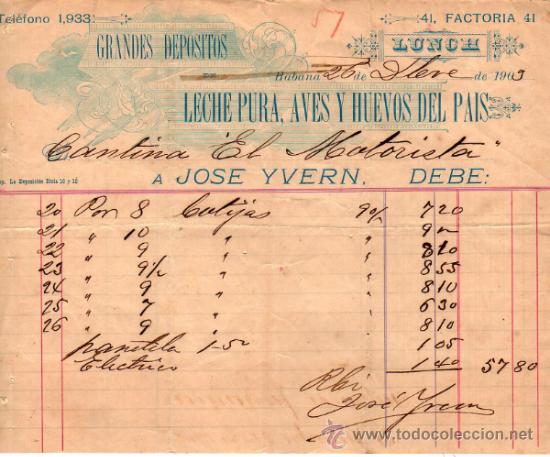 Teléfono 1,933
57
41, FACTORIA 41
GRANDES DEPOSITOS
DE
LUNCH
Habana 26 de Dbre de 1903
LECHE PURA, AVES Y HUEVOS DEL PAIS
Cantina "El Motorista"
Imp. La Exposición Riela 10 y 12
A JOSE YVERN, DEBE:
20 Por 8 Botijas 90/ 7 20
21 " 10 " " 9 "
22 " 9 " " 8 10
23 " 9 1/2 " " 8 55
24 " 9 " " 8 10
25 " 7 " " 6 30
26 " 9 " " 8 10
panetela 1-50 1 05
Electrico 1 40 57 80
Rbi
José Yvern
www.todocoleccion.net